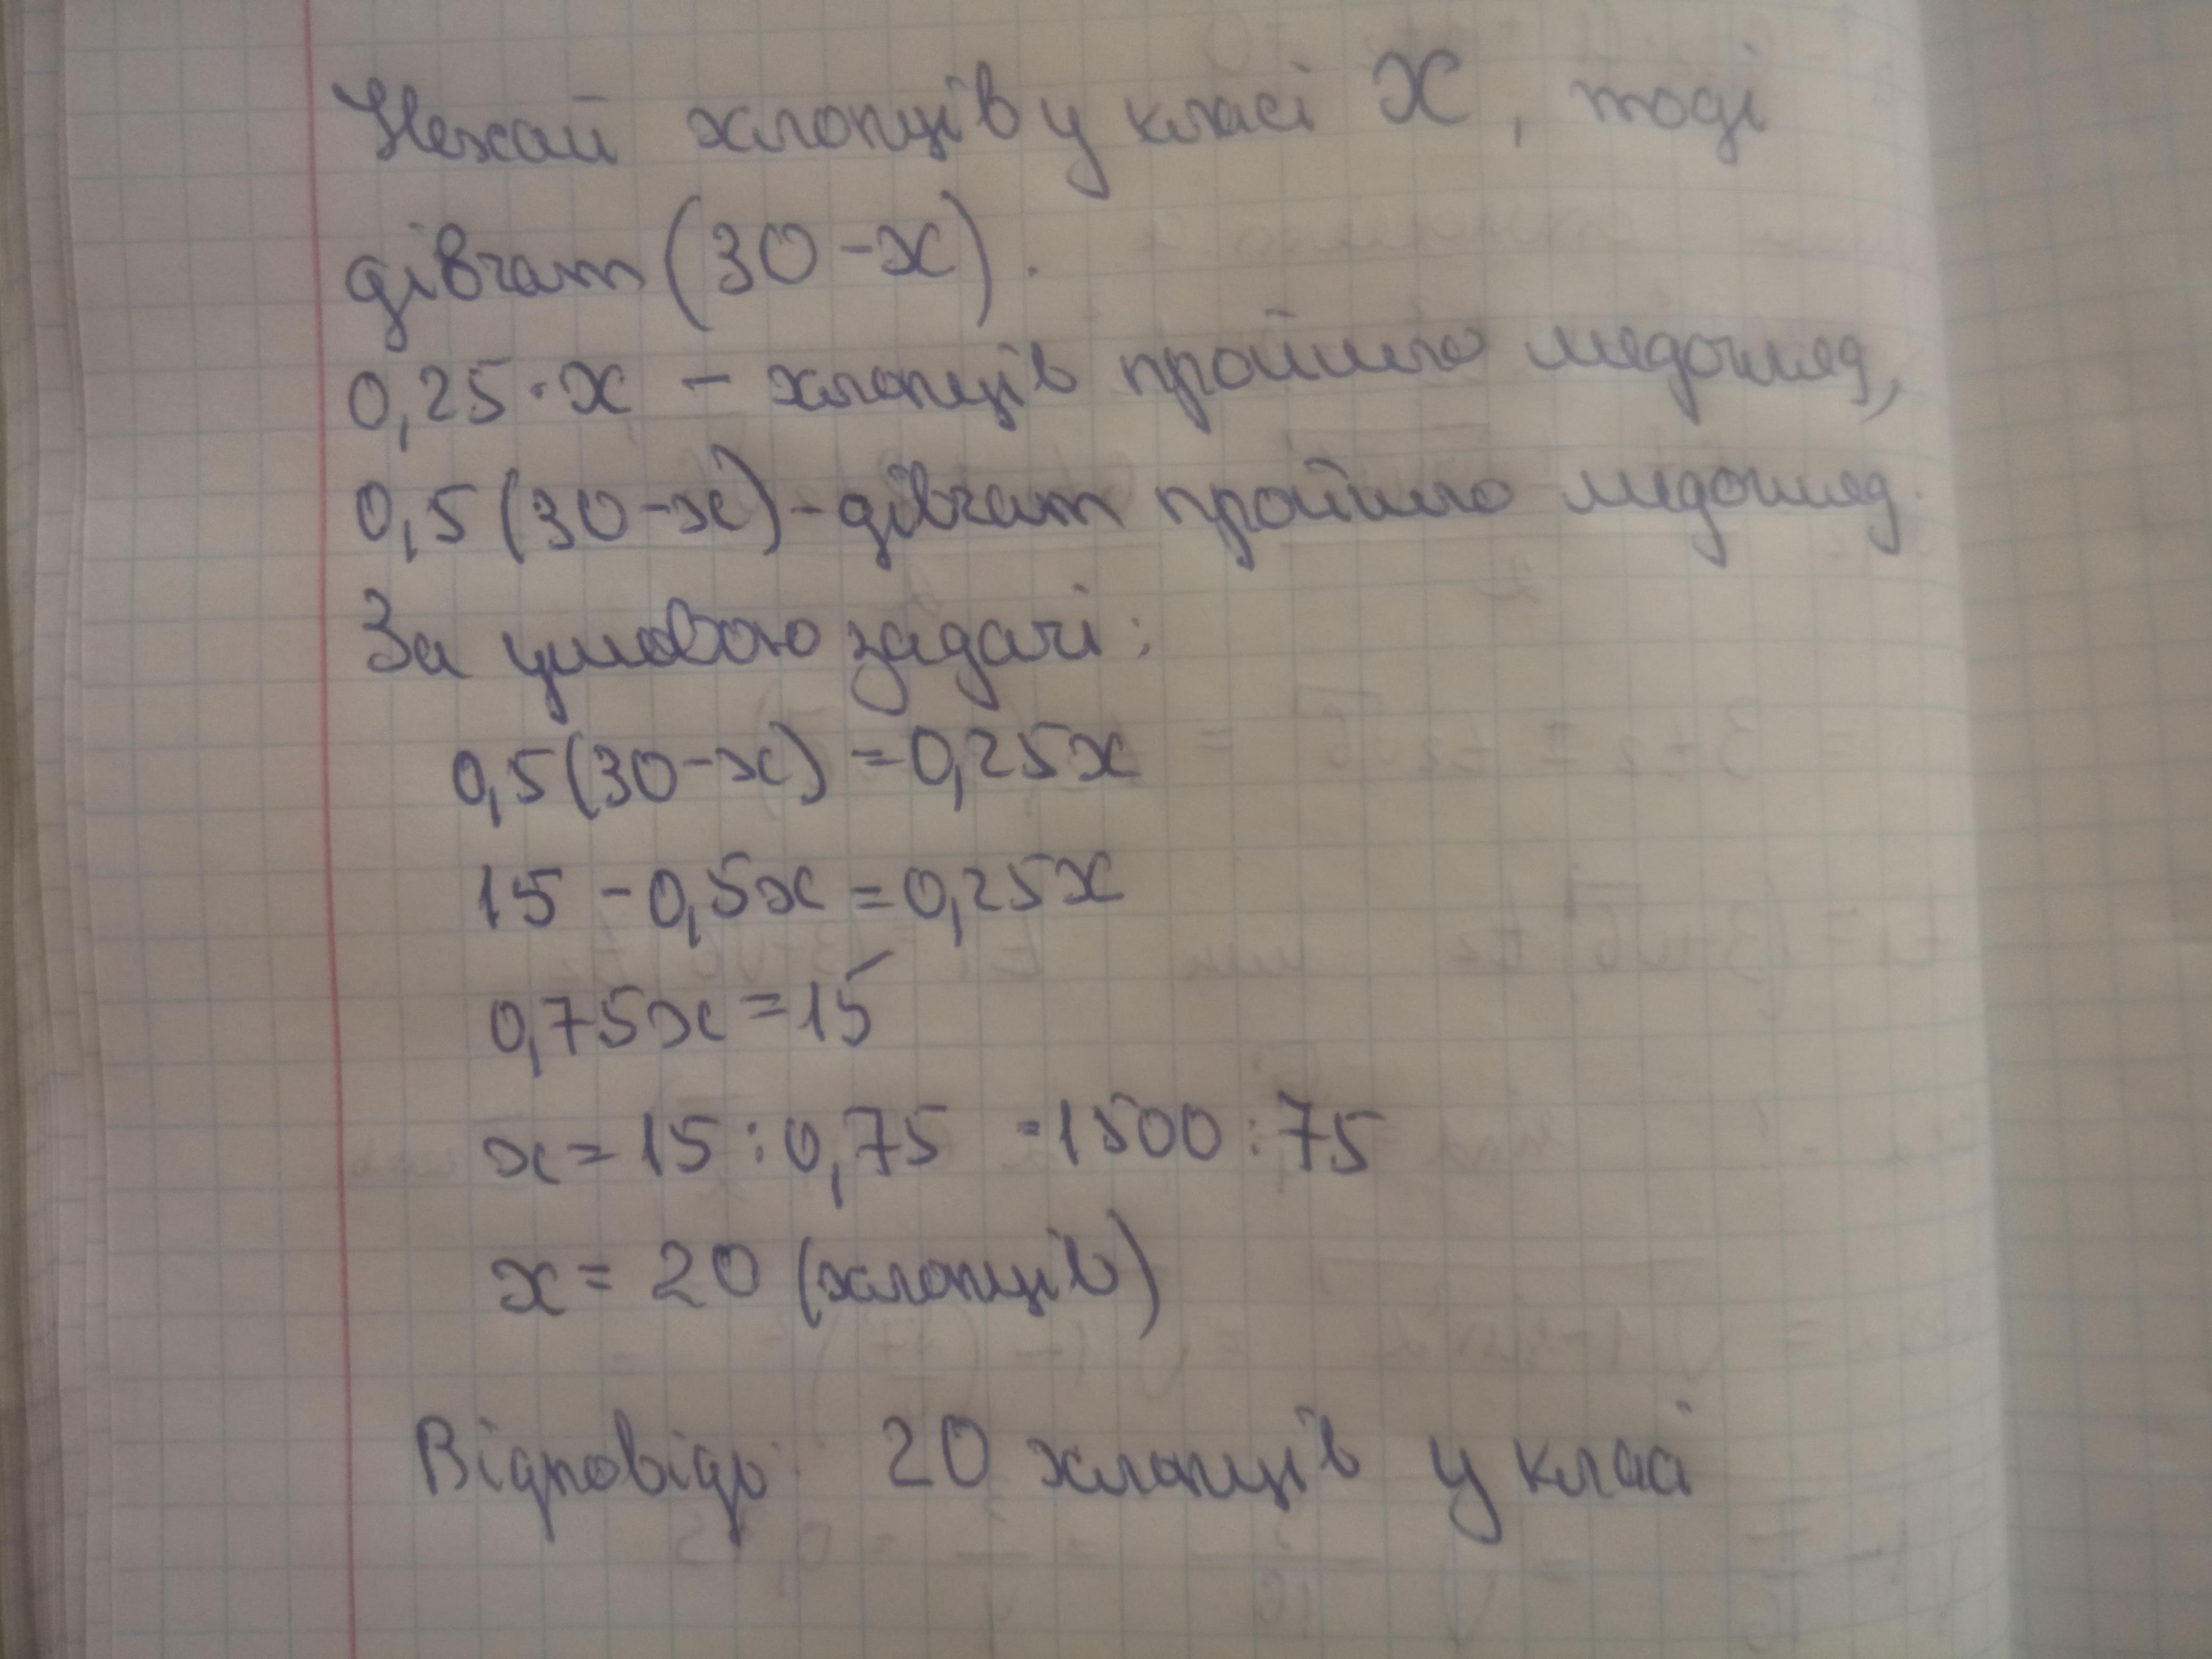 Нехай хлопців у класі X, тоді
дівчат (30-x).
0,25·x – хлопців пройшло медогляд,
0,5(30-x) - дівчат пройшло медогляд.
За умовою задачі:
0,5(30-x) = 0,25x
15 - 0,5x = 0,25x
0,75x = 15
x = 15 : 0,75 = 1500 : 75
x = 20 (хлопців)
Відповідь: 20 хлопців у класі